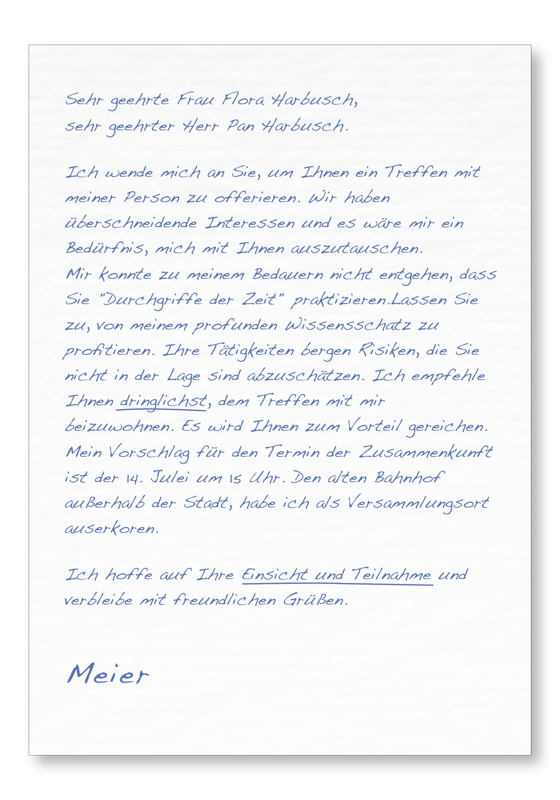 Sehr geehrte Frau Flora Harbusch,
sehr geehrter Herr Pan Harbusch.
Ich wende mich an Sie, um Ihnen ein Treffen mit
meiner Person zu offerieren. Wir haben
überschneidende Interessen und es wäre mir ein
Bedürfnis, mich mit Ihnen auszutauschen.
Mir konnte zu meinem Bedauern nicht entgehen, dass
Sie "Durchgriffe der Zeit" praktizieren.Lassen Sie
zu, von meinem profunden Wissensschatz zu
profitieren. Ihre Tätigkeiten bergen Risiken, die Sie
nicht in der Lage sind abzuschätzen. Ich empfehle
Ihnen dringlichst, dem Treffen mit mir
beizuwohnen. Es wird Ihnen zum Vorteil gereichen.
Mein Vorschlag für den Termin der Zusammenkunft
ist der 14. Julei um 15 Uhr. Den alten Bahnhof
außerhalb der Stadt, habe ich als Versammlungsort
auserkoren.
Ich hoffe auf Ihre Einsicht und Teilnahme und
verbleibe mit freundlichen Grüßen.
Meier